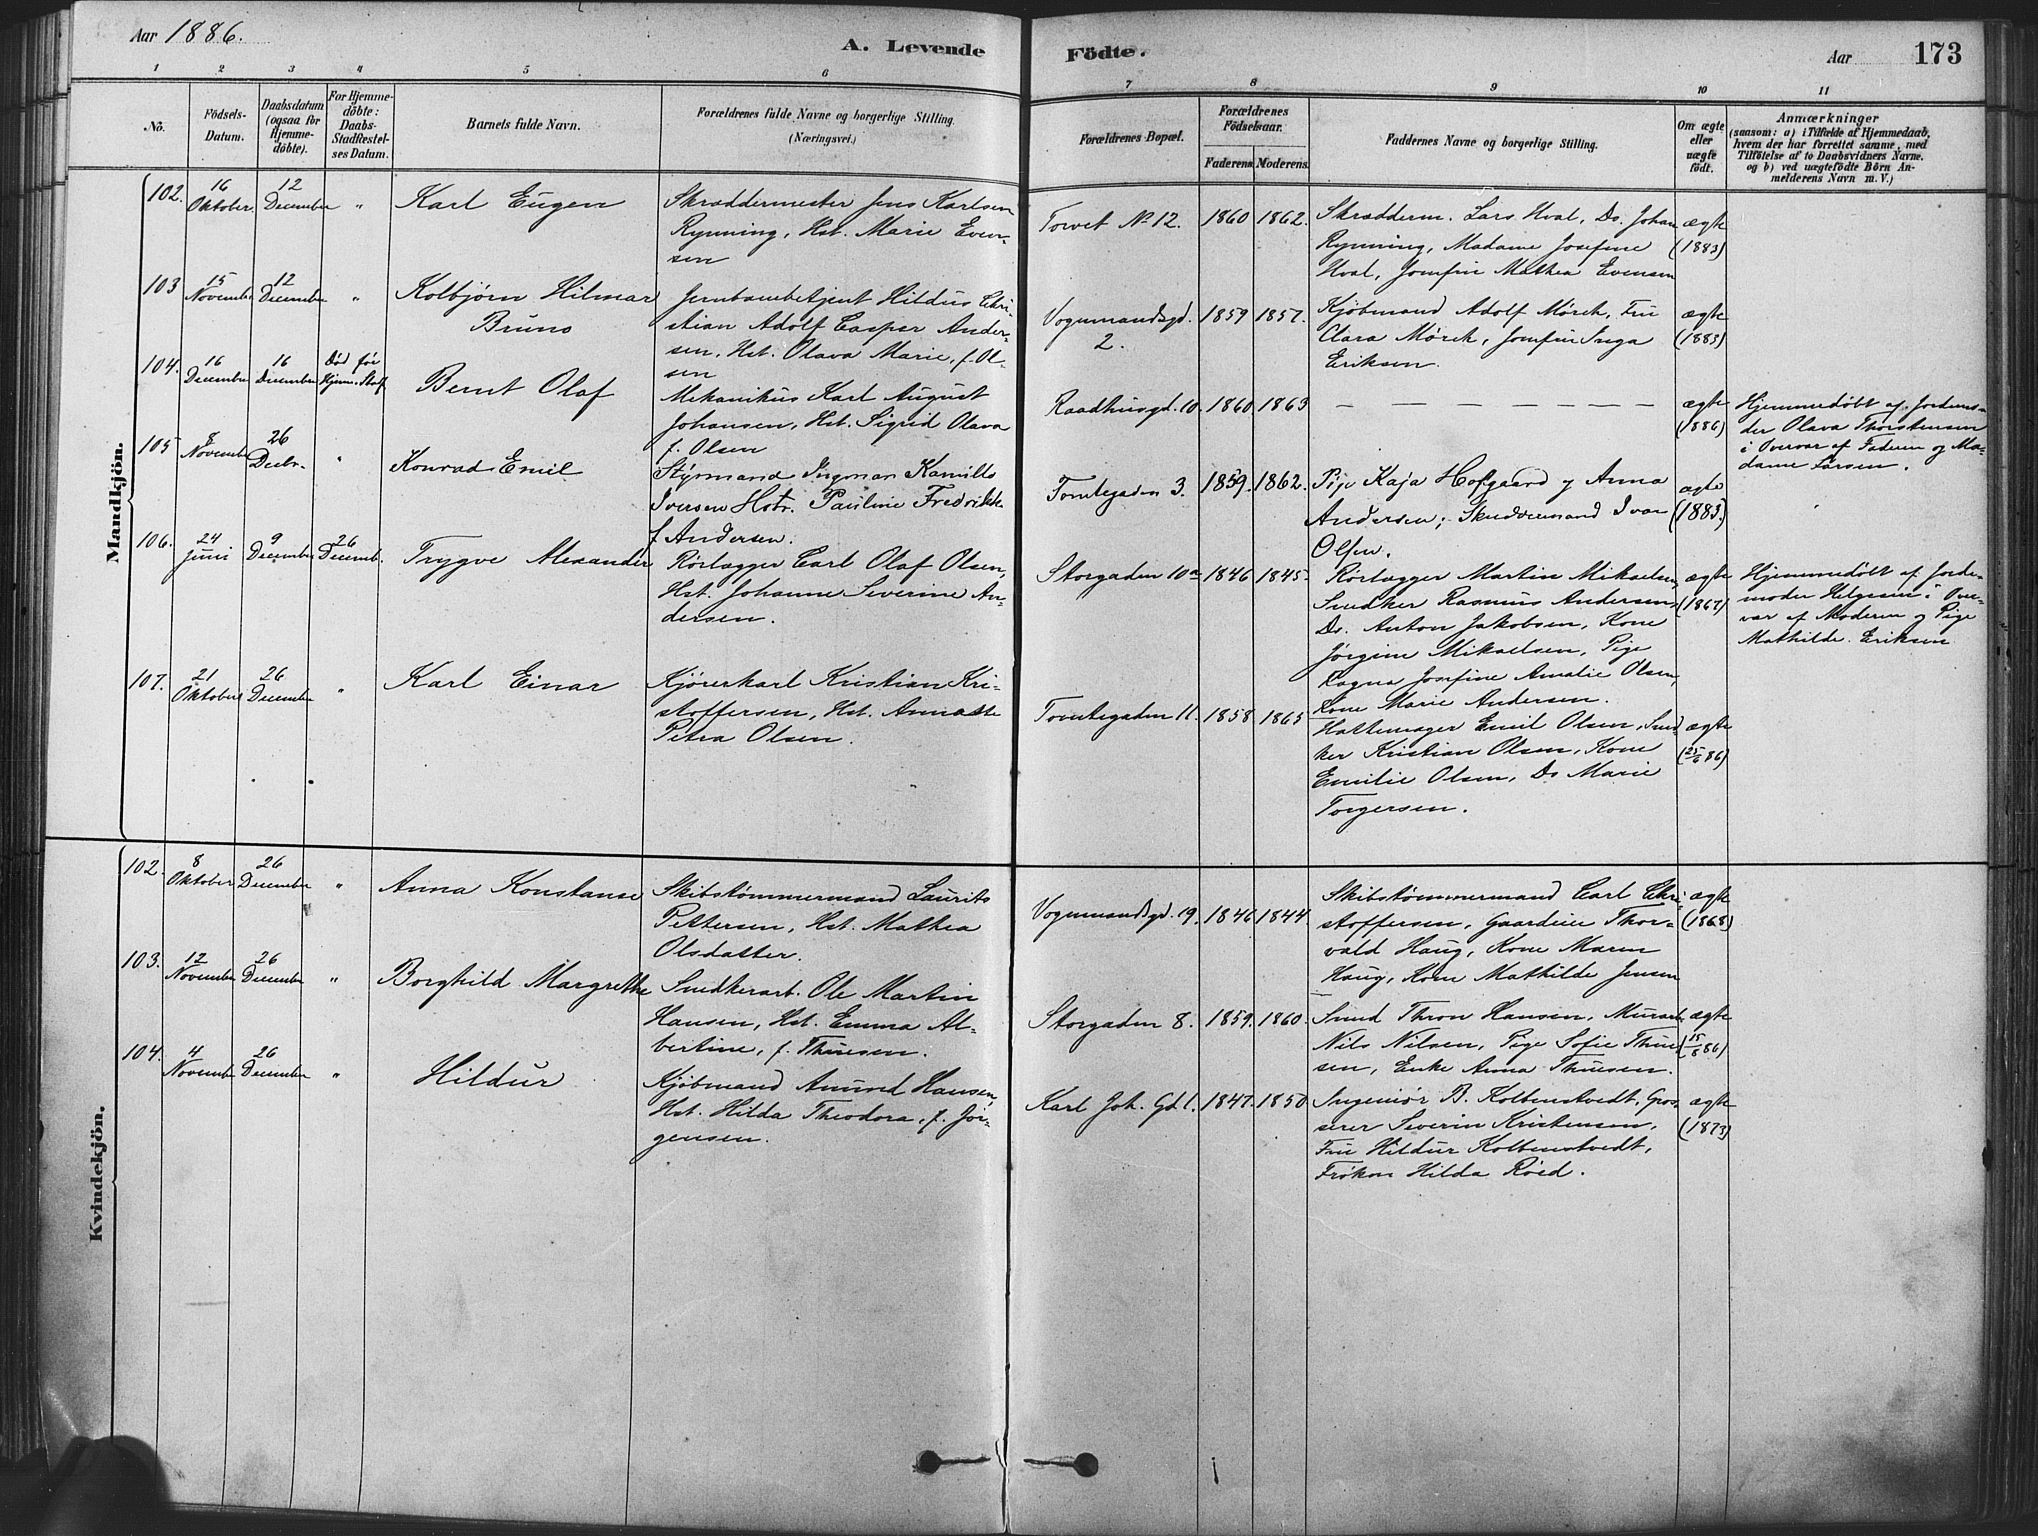 Aar 1886.
A. Levende
Födte.
Aar
173
1 2 3 4 5 6 7 8 9 10 11
No.
Födsels-
Datum.
Daabsdatum
(ogsaa for
Hjemme-
døbte).
For Hjemme-
døbte:
Daabs-
Stadfæstel-
ses Datum.
Barnets fulde Navn.
Forældrenes fulde Navne og borgerlige Stilling.
(Næringsvei.)
Forældrenes Bopæl.
Forældrenes
Födselsaar.
Faderens. Moderens.
Faddernes Navne og borgerlige Stilling.
Om ægte
eller
uægte
födt.
Anmærkninger
(saasom: a) i Tilfælde af Hjemmedaab,
hvem der har forrettet samme, med
Tilföielse af to Daabsvidners Navne.
og b) ved uægtefödte Börn An-
melderens Navn m. V.)
Mandkjön.
102. 16 Oktober. 12 December "
Karl Eugen
Skræddermester Jens Karlsen
Rynning, Hst. Marie Even-
sen
Torvet No 12. 1860 1862.
Skrædderm. Lars Hval, Ds. Johan
Rynning, Madame Josefine
Hval, Jomfru Mathea Evensen
ægte
(1883)
103 15 November 12 December "
Kolbjørn Hilmar
Bruno
Jernbanebetjent Hildus Chri-
stian Adolf Casper Ander-
sen, Hst. Olava Marie, f. Ol-
sen
Vognmandsgd.
2.
1859 1857.
Kjøbmand Adolf Mørch, Fru
Clara Mørch, Jomfru Inga
Eriksen.
ægte
(1883)
104. 16 December 16 December Død før
Hjem. Staf
Bernt Olaf
Mekanikus Karl August
Johansen, Hst. Sigrid Olava
f. Olsen
Raadhusgd. 10. 1860. 1863
— — — — — — —
ægte
(1886)
Hjemmedøbt af Jordemo-
der Olava Thorstensen
i Overvar af Faderen og Ma-
dame Larsen.
105 8 November 26 Decbr. "
Konrad Emil
Styrmand Ingman Kamillo
Iversen Hstr. Pauline Fredrikke
f Andersen.
Tomtegaden 3. 1859. 1862.
Pige Kaja Hofgaard og Anna
Andersen; Skræddermand Ivar
Olsen.
ægte
(1883.)
106. 24 Juni 9 December 26 Decemb.
Trygve Alexander
Rørlægger Carl Olaf Olsen,
Hst. Johanne Severine An-
dersen.
Storgaden 10a 1846 1845.
Rørlægger Martin Mikaelsen,
Snedker Rasmus Andersen,
Ds. Anton Jakobsen, Kone
Jørgine Mikaelsen, Pige
Ragna Josefine Amalie Olsen,
Kone Marie Andersen.
ægte
(1867)
Hjemmedøbt af Jorde-
moder Helgesen i Over-
var af Moderen og Pige
Mathilde Eriksen
107. 21 Oktober 26 December "
Karl Einar
Kjørerkarl Kristian Kri-
stoffersen, Hst. Annaste
Petra Olsen.
Tomtegaden 11. 1858 1865
Hattemager Emil Olsen, Sned-
ker Kristian Olsen, Kone
Emilie Olsen, Ds Marie
Torgersen.
ægte
(25/6 86)
Kvindekjön.
102. 8 Oktober 26 December "
Anna Konstanse
Skibstømmermand Laurits
Pettersen, Hst. Mathea
Olsdatter.
Vognmandsgd. 19. 1846 1844.
Skibstømmermand Carl Chri-
stoffersen, Gaardeier Thor-
vald Haug, Kone Maren
Haug, Kone Mathilde Jensen
ægte
(1868)
103. 12 November 26 December "
Borghild Margrethe
Snedkerarb. Ole Martin
Hansen, Hst. Emma Al-
bertine, f. Thuesen.
Storgaden 8. 1859. 1860.
Smed Thron Hansen, Murarb.
Nils Nilsen, Pige Sofie Thue-
sen, Enke Anna Thuesen.
ægte
(15/8 86)
104. 4 November 26 December "
Hildur
Kjøbmand Amund Hansen,
Hst. Hilda Theodora, f. Jør-
gensen.
Karl Joh. Gd. 1. 1847. 1850.
Ingeniør B. Kolbenstvedt, Gros-
serer Severin Kristensen,
Fru Hildur Kolbenstvedt,
Frøken Hilda Röed.
ægte
(1873)